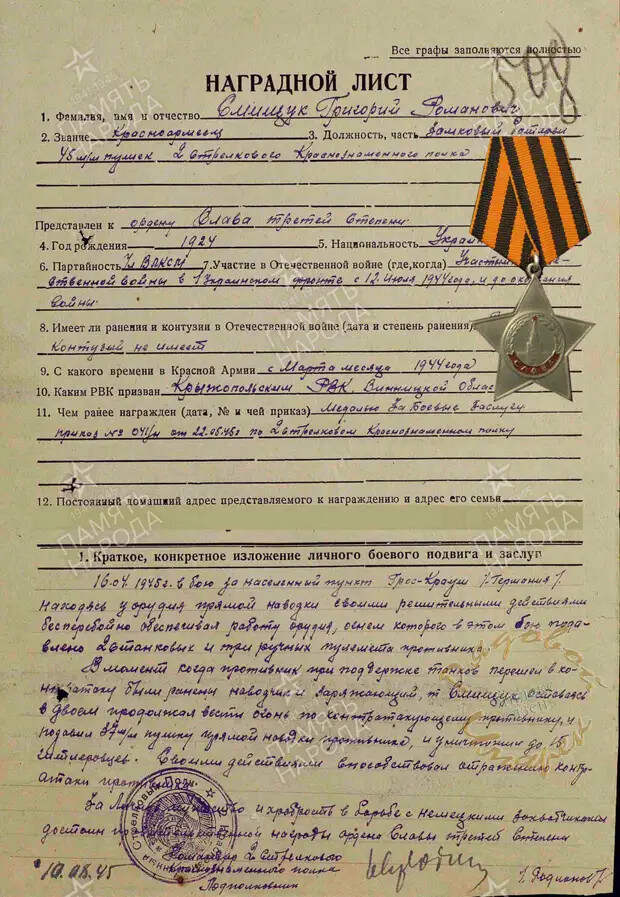 Все графы заполняются полностью
508
НАГРАДНОЙ ЛИСТ
1. Фамилия, имя и отчество Смищук Григорий Романович
2. Звание Красноармеец 3. Должность, часть Замковый батареи
45 м/м пушек 2 Стрелкового Краснознаменного полка
Представлен к ордену Слава третей степени
4. Год рождения 1924 5. Национальность Украи
6. Партийность ВЛКСМ 7. Участие в Отечественной войне (где, когда) Участник
ственной войны в 1 Украинском фронте с 12 Июля 1944 года, и до окончания
войны.
8. Имеет ли ранения и контузии в Отечественной войне (дата и степень ранения)
Контузий не имеет
9. С какого времени в Красной Армии с Марта месяца 1944 года
10. Каким РВК призван Крыжопольским РВК, Винницкой Облас
11. Чем ранее награжден (дата, № и чей приказ) Медалью За Боевые Заслуги
приказ № 041/н от 22.05.45г по 2 стрелковом Краснознаменном полку
12. Постоянный домашний адрес представляемого к награждению и адрес его семьи
1. Краткое, конкретное изложение личного боевого подвига и заслуг
16.04.1945г. в бою за населенный пункт Грос-Крауш /Германия/.
находясь у орудия прямой наводки своими решительными действиями
бесперебойно обеспечивал работу орудия, огнем которого в этом бою пода-
влено 2 станковых и три ручных пулемета противника.
В момент когда противник при поддержке танков перешел в кон-
тратаку были ранены наводчик и заряжающий, т. Смищук оставаясь
в двоем продолжал вести огонь по контратакующему противнику, и
подавил 37 м/м пушку прямой наводки противника, и уничтожил до 15
гитлеровцев. Своими действиями способствовал отражению контр-
атаки противника.
За личное мужество и храбрость в борьбе с немецкими захватчиками
достоин правительственной награды ордена Славы третей Степени
Командир 2 Стрелкового
Краснознаменного полка
Подполковник /Родионов/
10.08.45
ПАМЯТЬ
НАРОДА